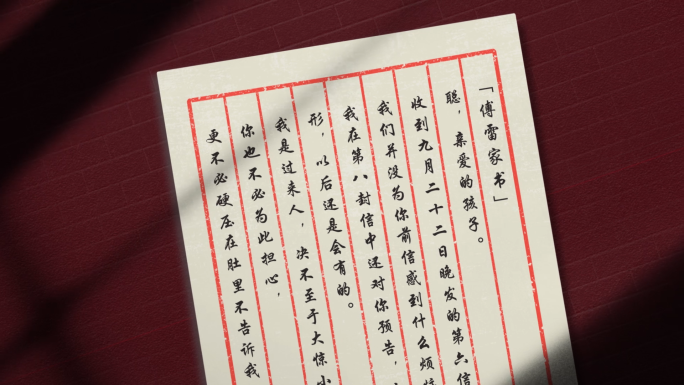 「傅雷家书」
聪，亲爱的孩子。
收到九月二十二日晚发的第六信
我们并没为你前信感到什么烦
我在第八封信中还对你预告，
形，以后还是会有的。
我是过来人，决不至于大惊小
你也不必为此担心，
更不必硬压在肚里不告诉我